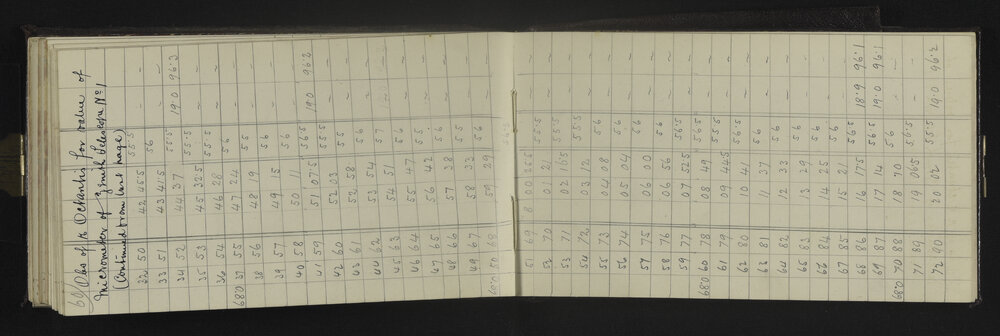 60/ Obs of κ Octantis for value of
Micrometer of Zenith Telescope No 1
(Continued from last page)
32 50 42 46.5 55.5
33 51 43 41.5 56
34 52 44 37 55.5 19.0 96.3
35 53 45 32.5 55.5
36 54 46 28 56
68.0 37 55 47 24 55
38 56 48 19 56
39 57 49 15 56
40 58 50 11 56.5 19.0 96.2
41 59 51 07.5 55.5
42 60 52 03 55
43 61 52 58 56
44 62 53 54 57
45 63 54 51 56
46 64 55 47 55
47 65 56 42 56
48 66 57 38 55
49 67 58 33 56
68.0 50 68 59 29 56.5
51 69 8 00 25.5 55.5
52 70 01 21 55.5
53 71 02 16.5 55.5
54 72 03 12 56
55 73 04 08 56
56 74 05 04 56
57 75 06 00 56
58 76 06 56 56.5
59 77 07 52.5 56.5
68.0 60 78 08 49 55.5
61 79 09 44.5 56.5
62 80 10 41 56
63 81 11 37 56
64 82 12 33 56
65 83 13 29 56
66 84 14 25 56
67 85 15 21 56.5
68 86 16 17.5 56.5 18.9 96.1
69 87 17 14 56 19.0 96.1
68.0 70 88 18 10 56.5
71 89 19 06.5 55.5
72 90 20 02 19.0 96.2